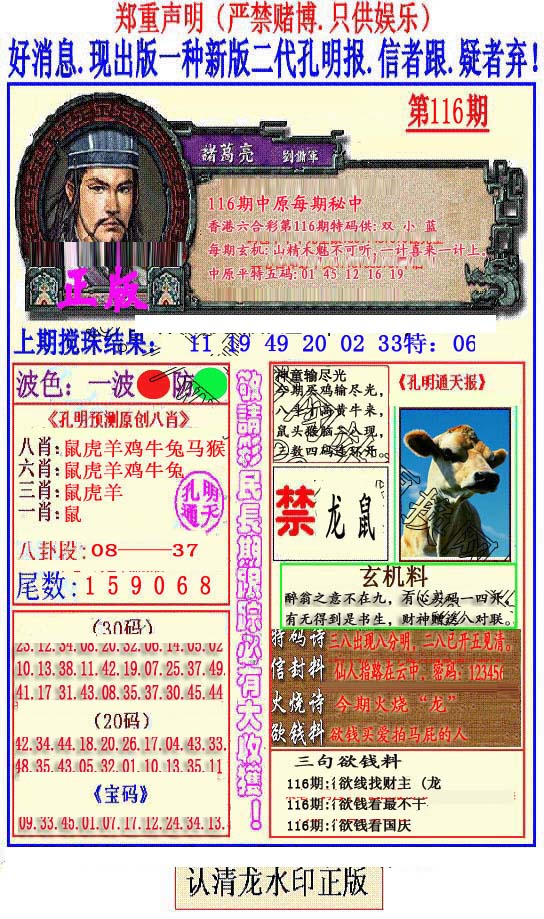 郑重声明（严禁赌博.只供娱乐）
好消息.现出版一种新版二代孔明报.信者跟.疑者弃!
第116期
諸葛亮 劉備軍
116期中原每期秘中
香港六合彩第116期特码供: 双 小 蓝
每期玄机: 山精木魅不可听,一计喜来一计上。
中原平特五码: 01 45 12 16 19
正版
上期搅珠结果： 11 19 49 20 02 33特: 06
波色: 一波 防
《孔明预测原创八肖》
八肖: 鼠虎羊鸡牛兔马猴
六肖: 鼠虎羊鸡牛兔
三肖: 鼠虎羊
一肖: 鼠
孔明
通天
八卦段: 08——37
尾数: 1 5 9 0 6 8
(30码)
23.12.34.08.20.32.06.14.05.02
10.13.38.11.42.19.07.25.37.49
41.17.31.43.08.35.37.30.45.44
(20码)
42.34.44.18.20.26.17.04.43.33.
48.35.43.05.32.01.10.13.35.11
《宝码》
09.33.45.01.07.17.12.24.34.13.
敬請彩民長期跟踪必有大收獲！
神童输尽光
今期买鸡输尽光，
《孔明通天报》
禁 龙鼠
玄机料
醉翁之意不在九，有心买码一四开，
有无得到是书生，财神赠送八对联。
特码诗 三八出现八分明，二八已开五见清。
信封料 仙人指路在云中、密码：123456
火烧诗 今期火烧“龙”
欲钱料 欲钱买爱拍马屁的人
三句欲钱料
116期: 欲线找财主（龙
116期: 欲钱看最不干
116期: 欲钱看国庆
认清龙水印正版